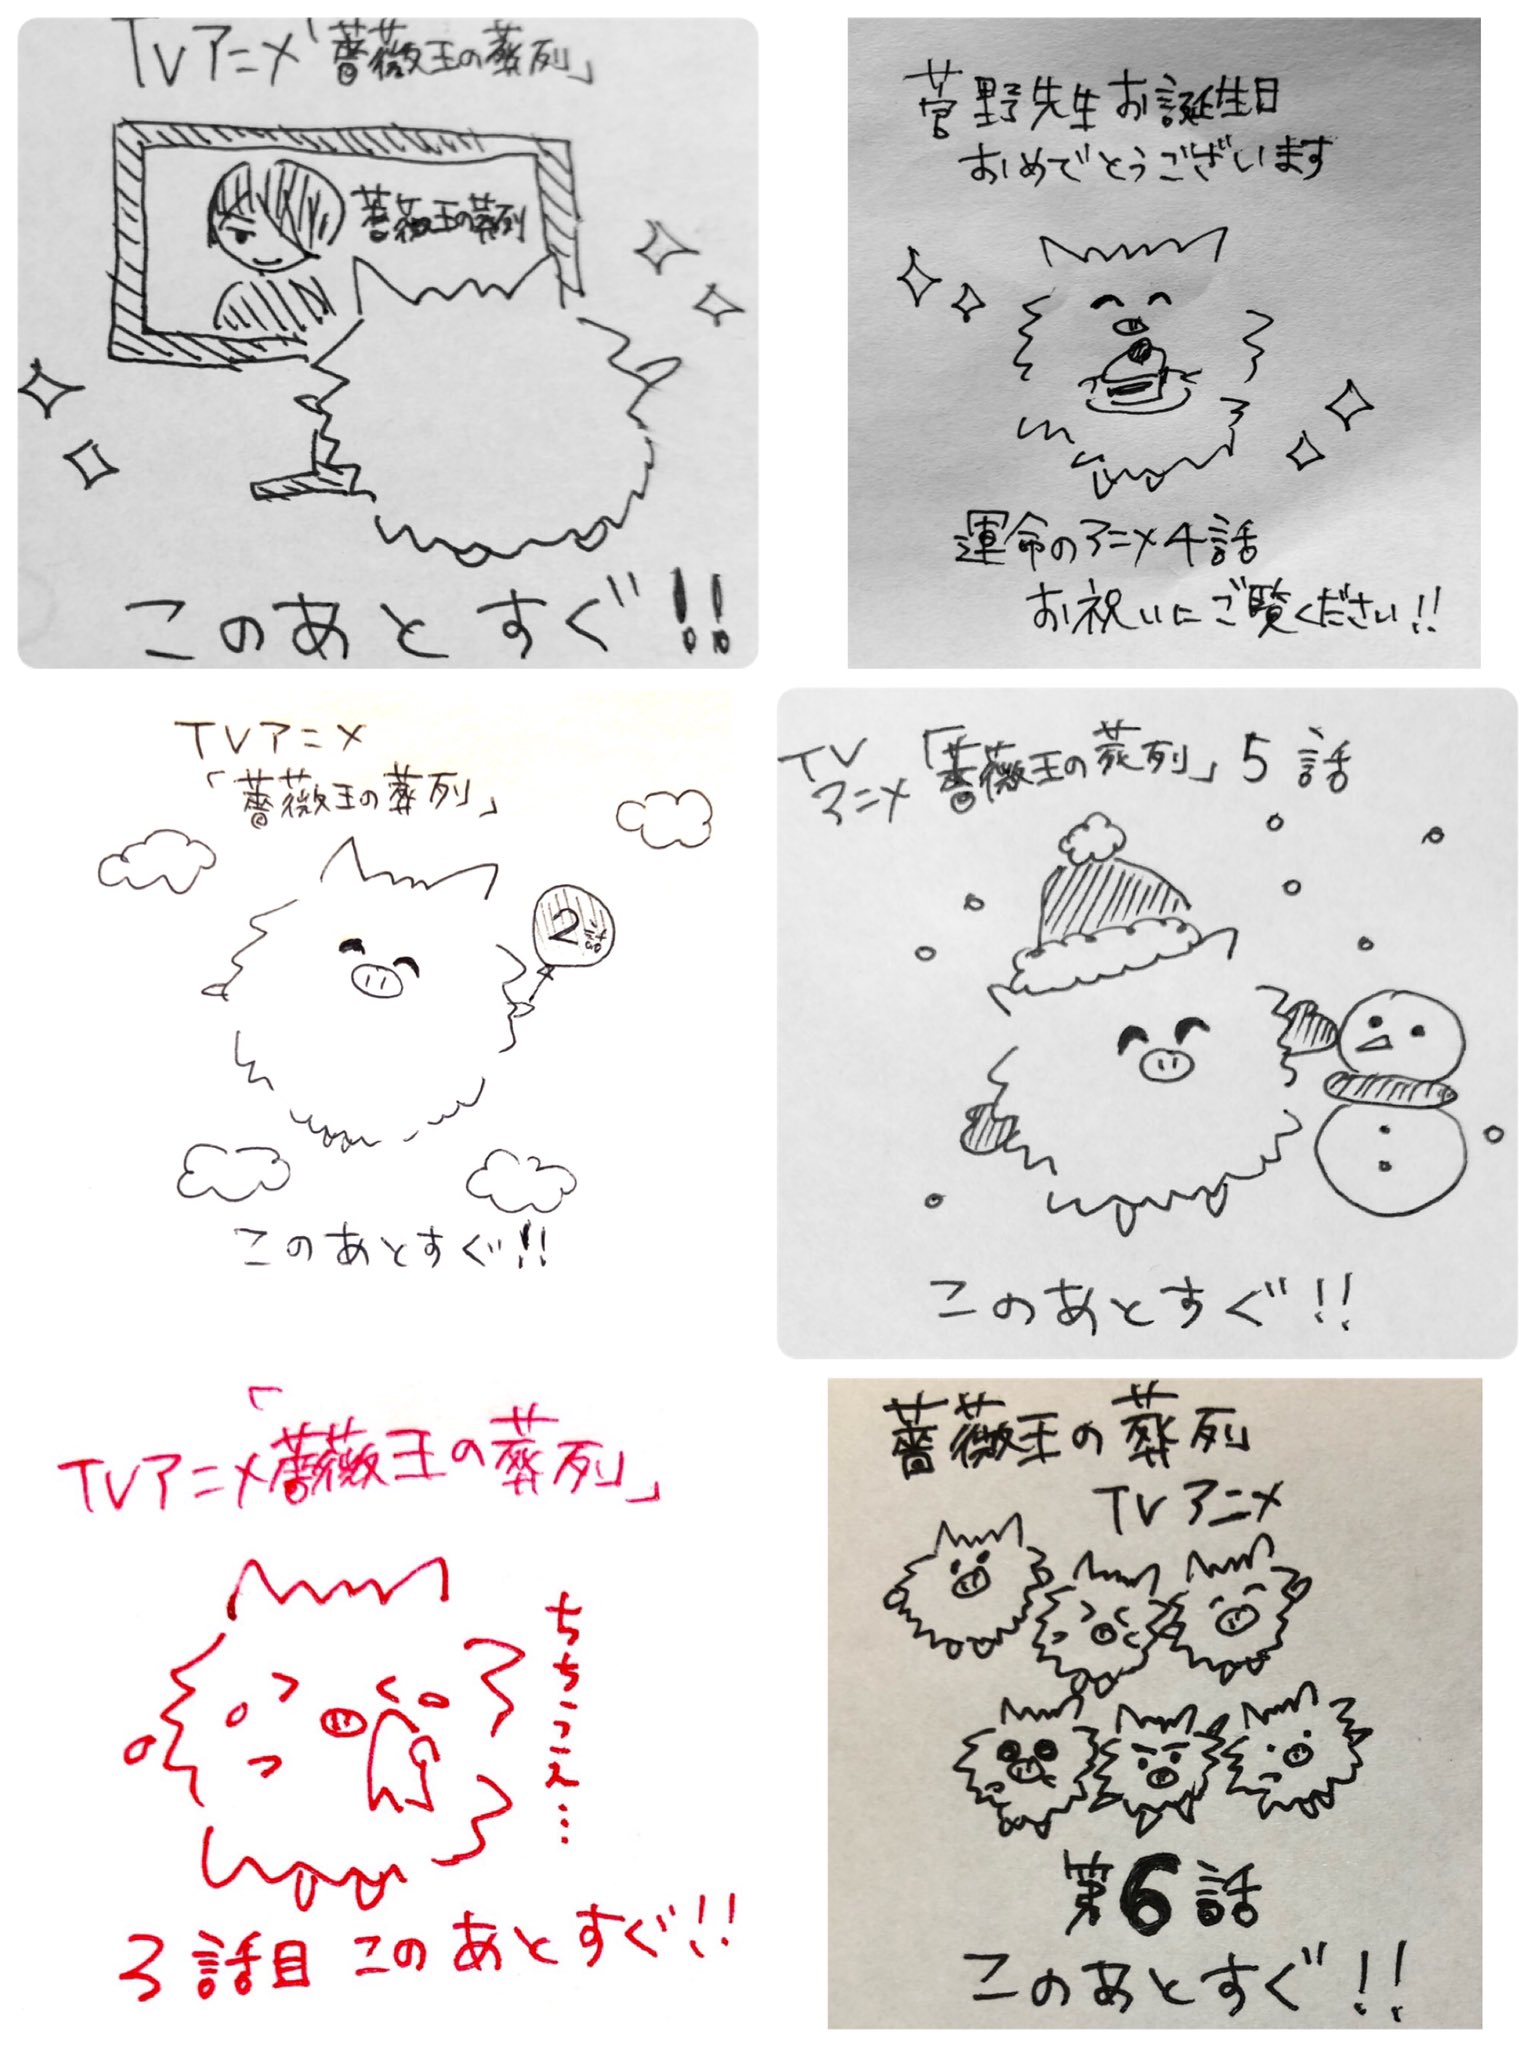 TVアニメ「薔薇王の葬列」
薔薇王の葬列
このあとすぐ!!
菅野先生お誕生日
おめでとうございます
運命のアニメ4話
お祝いにご覧ください!!
TVアニメ
「薔薇王の葬列」
2話
このあとすぐ!!
TV
アニメ「薔薇王の葬列」5話
このあとすぐ!!
TVアニメ「薔薇王の葬列」
ちちうえ…
3話目 このあとすぐ!!
薔薇王の葬列
TVアニメ
第6話
このあとすぐ!!